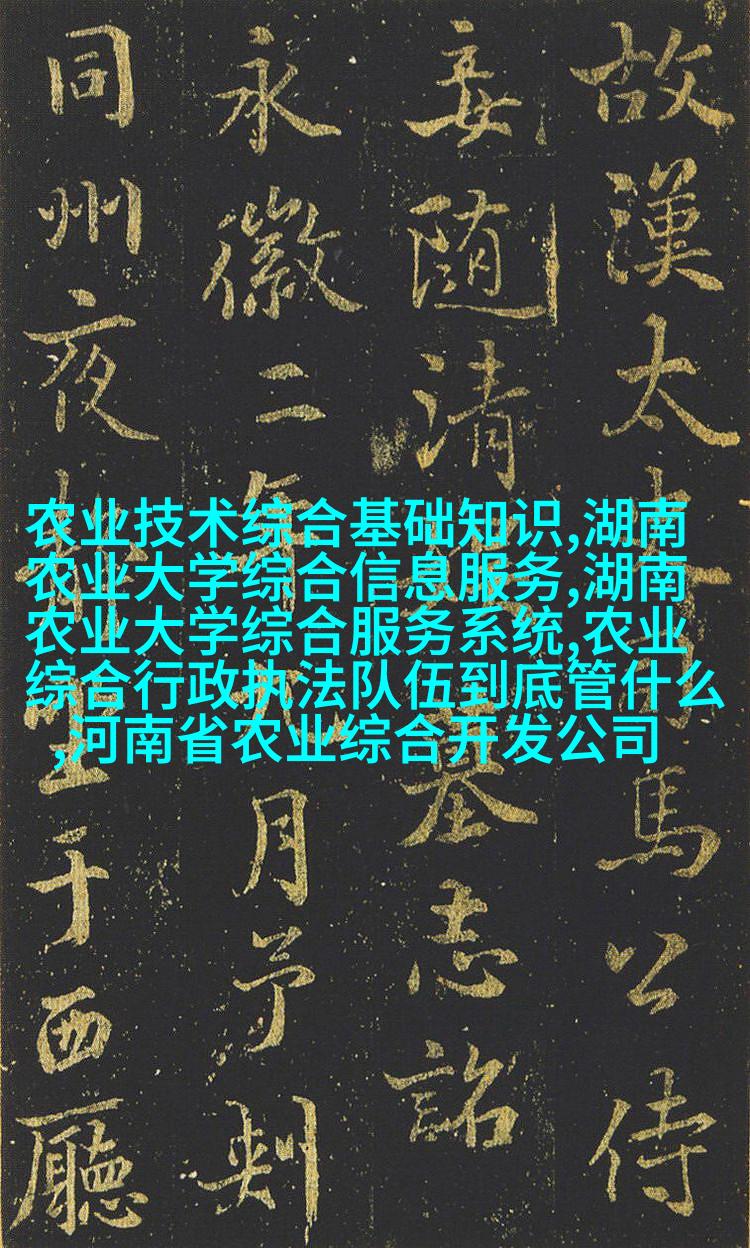 故漢太史司馬公侍
妾随清娱墓志銘
永徽二年九月予刾
同州夜静坐于西廳
农业技术综合基础知识,湖南
农业大学综合信息服务,湖南
农业大学综合服务系统,农业
综合行政执法队伍到底管什么
,河南省农业综合开发公司